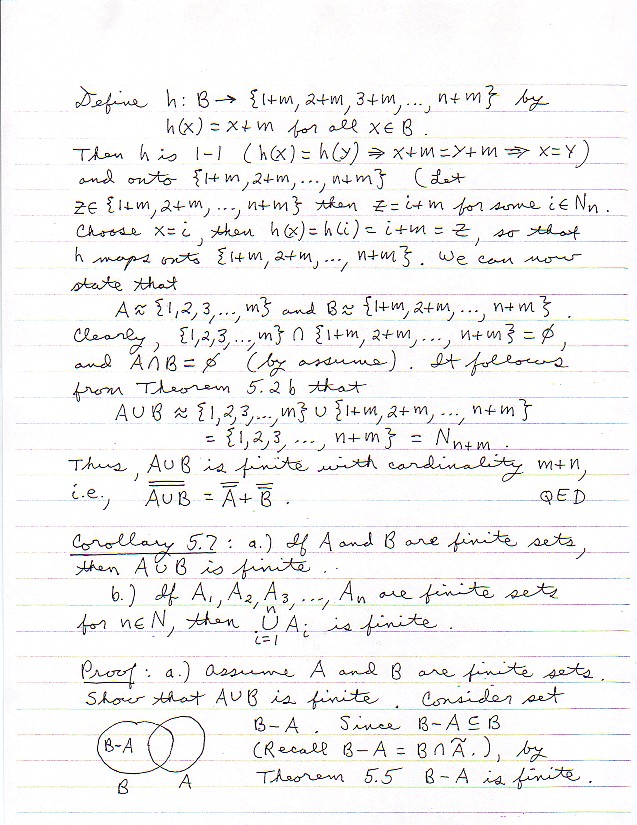 Define h: B → {1+m, 2+m, 3+m, ..., n+m} by
h(x) = x+m for all x ∈ B.
Then h is 1-1 (h(x) = h(y) ⇒ x+m = y+m ⇒ x=y)
and onto {1+m, 2+m, ..., n+m} (Let
z ∈ {1+m, 2+m, ..., n+m} then z = i+m for some i ∈ Nn.
Choose x=i, then h(x) = h(i) = i+m = z, so that
h maps onto {1+m, 2+m, ..., n+m}. We can now
state that
A ≈ {1,2,3,...,m} and B ≈ {1+m, 2+m, ..., n+m}.
Clearly, {1,2,3,...,m} ∩ {1+m, 2+m, ..., n+m} = ∅,
and A∩B = ∅ (by assume). It follows
from Theorem 5.2b that
A∪B ≈ {1,2,3,...,m} ∪ {1+m, 2+m, ..., n+m}
= {1,2,3, ..., n+m} = Nn+m.
Thus, A∪B is finite with cardinality m+n,
i.e., A̿∪̿B̿ = A̿ + B̿. QED
Corollary 5.7: a.) If A and B are finite sets,
then A∪B is finite.
b.) If A₁, A₂, A₃, ..., An are finite sets
for n∈N, then n⋃i=1 Ai is finite.
Proof: a.) Assume A and B are finite sets.
Show that A∪B is finite. Consider set
B-A. Since B-A ⊆ B
(Recall B-A = B∩Ã.), by
Theorem 5.5 B-A is finite.
B-A
B A